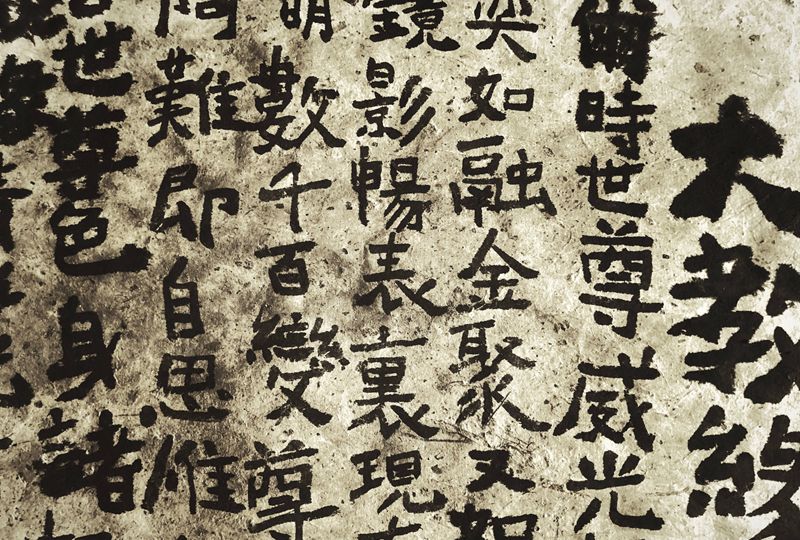 大教緣
爾時世尊威光
奕如融金聚又如
鏡影暢表裏現
明數千百變尊
難即自思惟
世尊色身諸